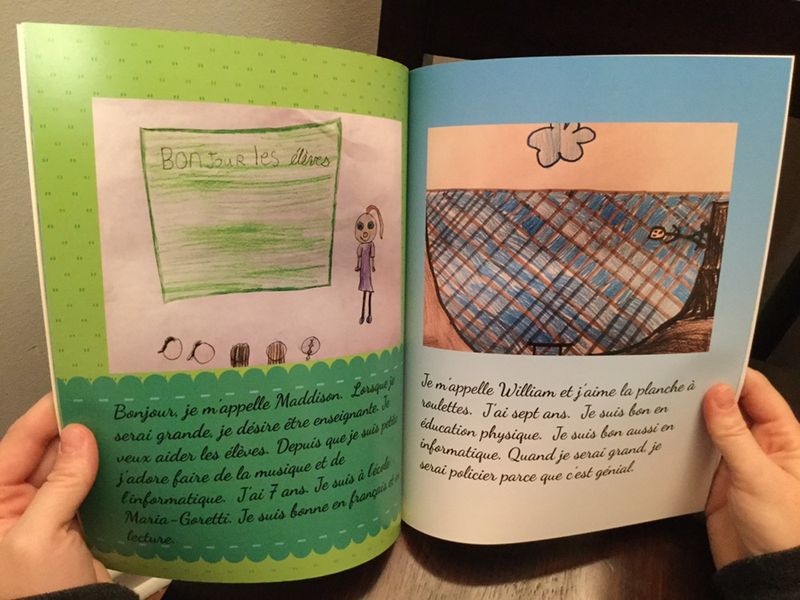 BONJOUR les élèves
Bonjour, je m'appelle Maddison. Lorsque je
serai grande, je désire être enseignante. Je
veux aider les élèves. Depuis que je suis petite
j'adore faire de la musique et de
l'informatique. J'ai 7 ans. Je suis à l'école
Maria-Goretti. Je suis bonne en français et en
lecture.
Je m'appelle William et j'aime la planche à
roulettes. J'ai sept ans. Je suis bon en
éducation physique. Je suis bon aussi en
informatique. Quand je serai grand, je
serai policier parce que c'est génial.